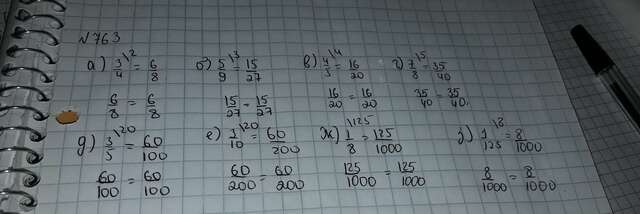 №763
а) 3/4 \2 = 6/8 б) 5/9 \3 = 15/27 в) 4/5 \4 = 16/20 г) 7/8 \5 = 35/40
6/8 = 6/8 15/27 = 15/27 16/20 = 16/20 35/40 = 35/40.
д) 3/5 \20 = 60/100 е) 3/10 \20 = 60/200 ж) 1/8 \125 = 125/1000 з) 1/125 \8 = 8/1000
60/100 = 60/100 60/200 = 60/200 125/1000 = 125/1000 8/1000 = 8/1000